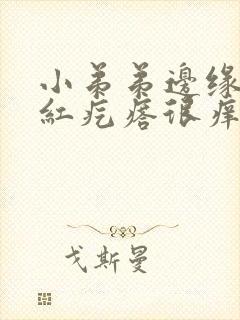 小弟弟邊緣
紅疙瘩很痒
戈斯曼